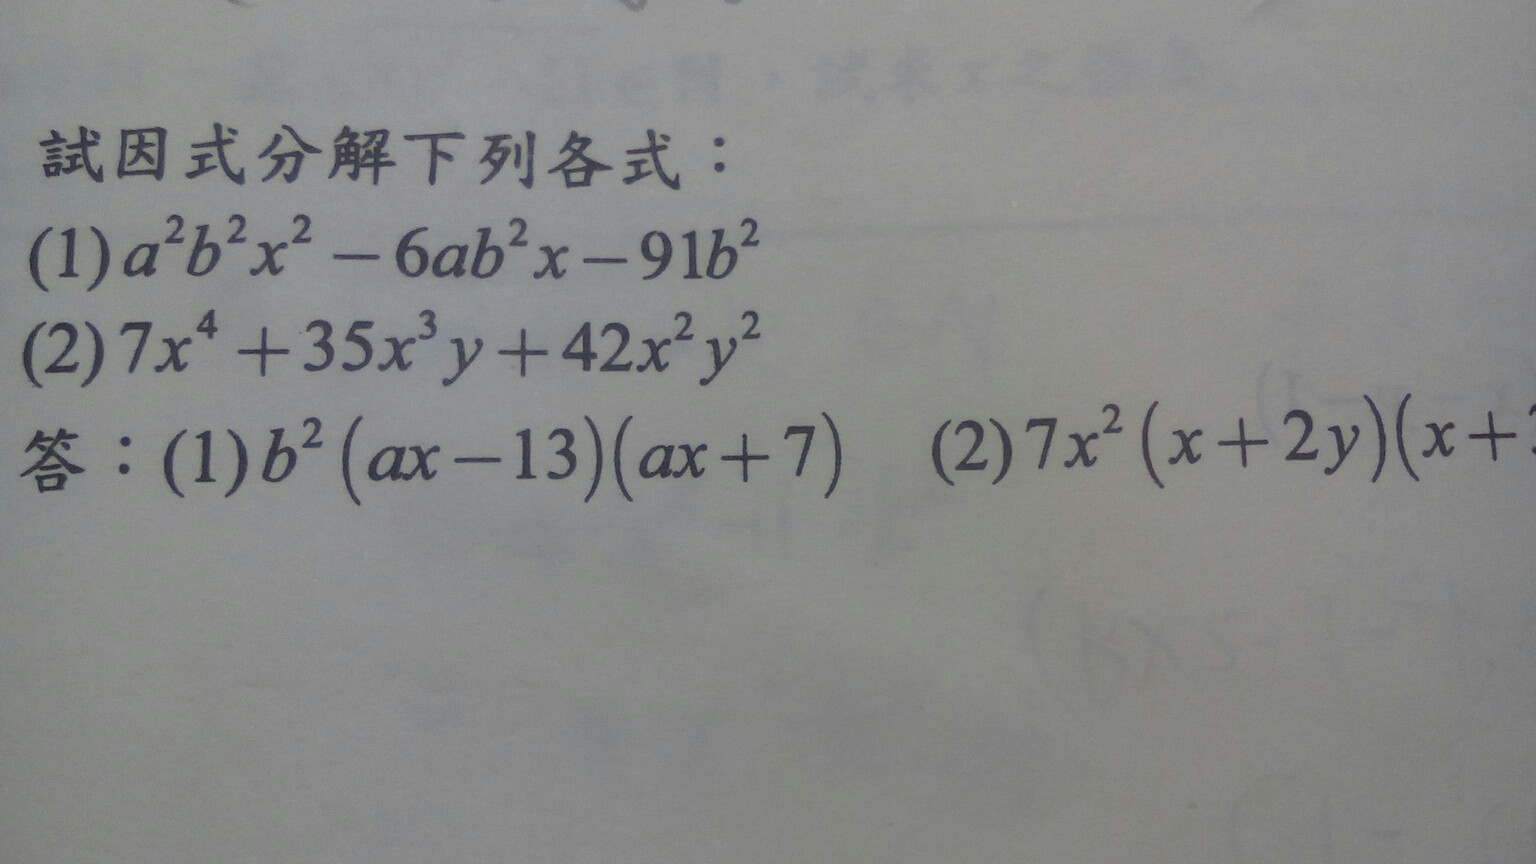 試因式分解下列各式：
(1) a²b²x² − 6ab²x − 91b²
(2) 7x⁴ + 35x³y + 42x²y²
答：(1) b²(ax − 13)(ax + 7) (2) 7x²(x + 2y)(x +